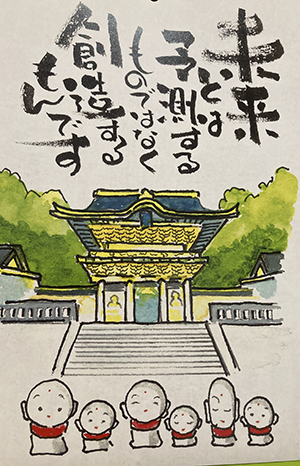 未来
とは
予測する
ものではなく
創造する
もんです